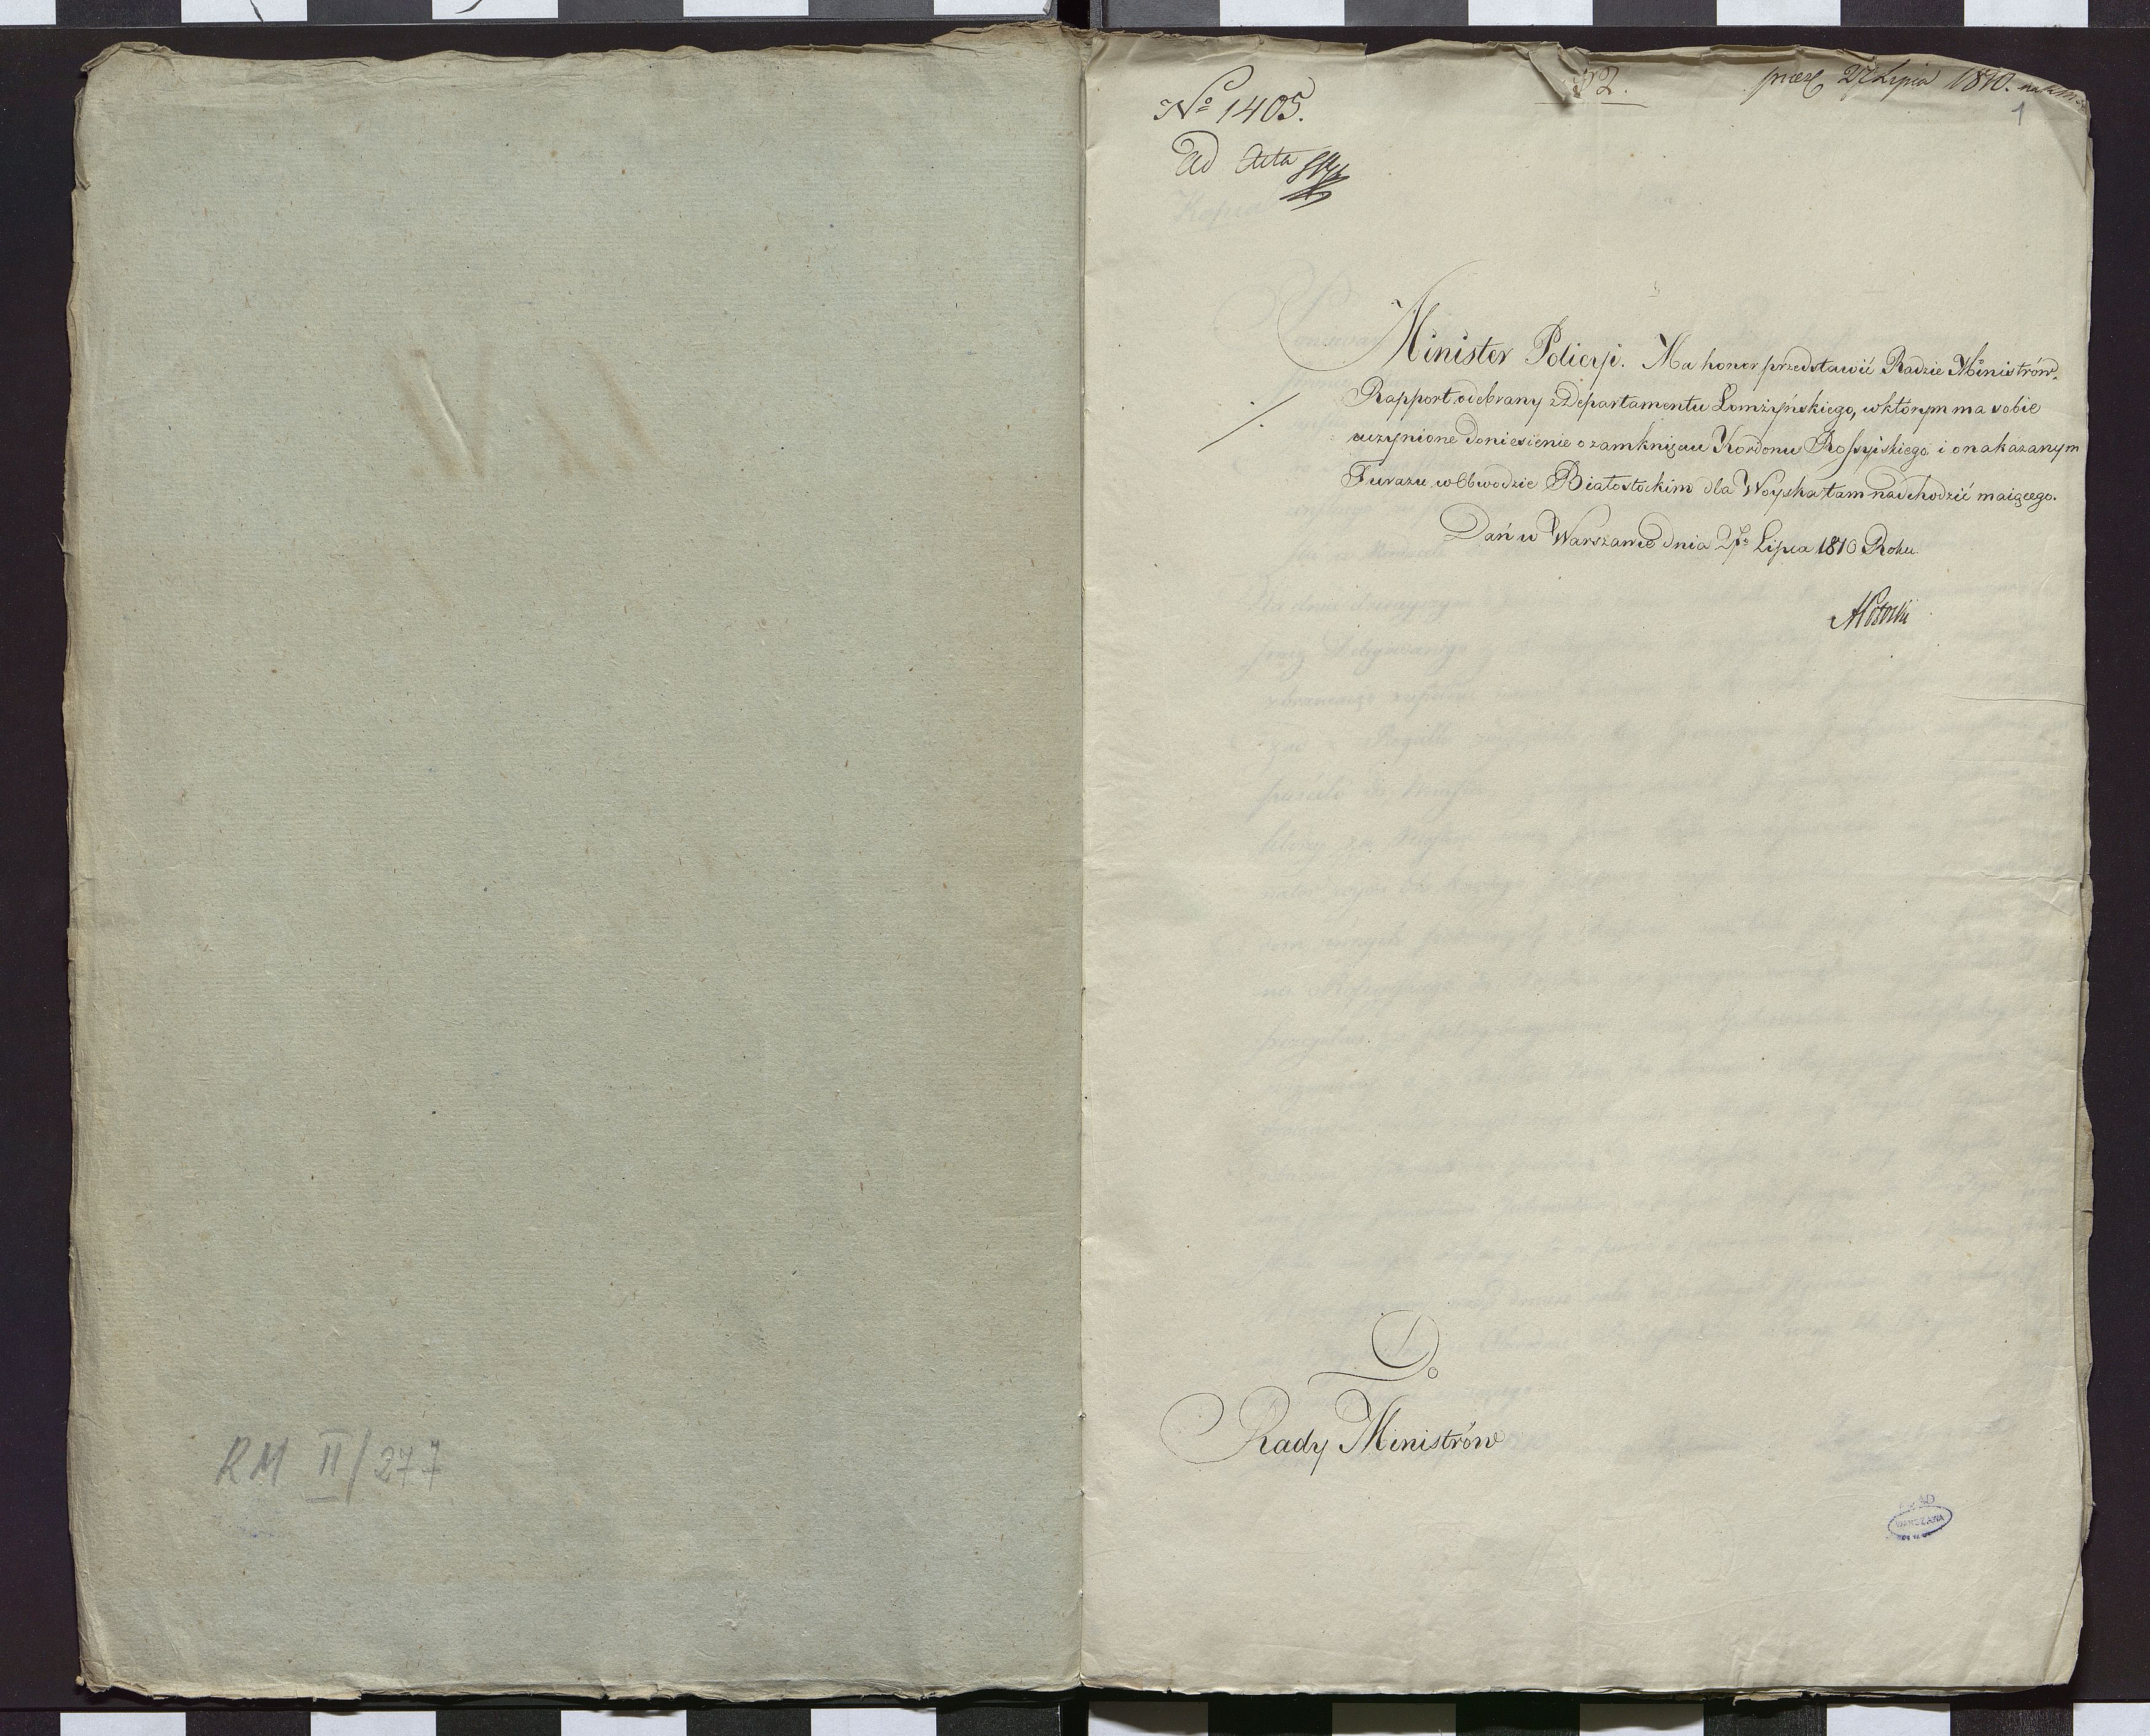 RM II/277
No 1405.
32.
27 Lipca 1810.
1
Ad Acta
Minister Policyi. Ma honor przedstawić Radzie Ministrów.
Rapport odebrany z Departamentu Łomżyńskiego, w którym ma sobie
uczynione doniesienie o zamknięciu Kordonu Rossyiskiego i o nakazanym
Furażu w Obwodzie Białostockim dla Woyska tam nadchodzić maiącego.
Dań w Warszawie dnia 27go Lipca 1810 Roku.
Do
Rady Ministrów
AGAD
WARSZAWA